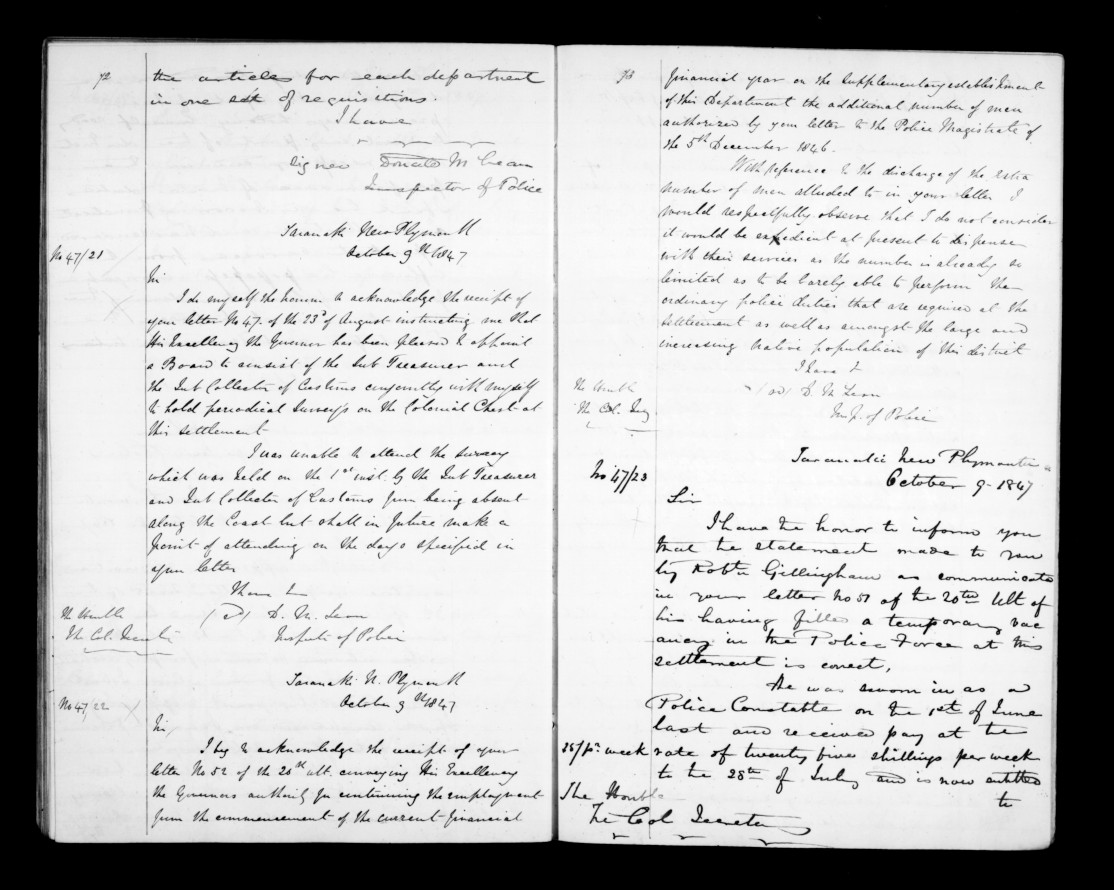 72
the articles for each department
in one set of requisitions.
I have
Signed Donald McLean
Inspector of Police
Taranaki New Plymouth
No 47/21
October 9th 1847
Sir
I do myself the honour to acknowledge the receipt of
your letter No 47. of the 23d of August instructing me that
His Excellency the Governor has been pleased to appoint
a Board to consist of the Sub Treasurer and
the Sub Collector of Customs conjointly with myself
to hold periodical Surveys on the Colonial Chest at
this settlement
I was unable to attend the survey
which was held on the 1st inst. by the Sub Treasurer
and Sub Collector of Customs from being absent
along the Coast but shall in future make a
point of attending on the days specified in
your letter
I have &c
The Honble
(sd) D. McLean
The Col. Secretary
Inspector of Police
Taranaki N. Plymouth
No 47/22
October 9th 1847
Sir,
I beg to acknowledge the receipt of your
letter No 52 of the 20th ult. conveying His Excellency
the Governors authority for continuing the employment
from the commencement of the current financial
73
financial year on the Supplementary establishment
of this Department the additional number of men
authorized by your letter to the Police Magistrate of
the 5th December 1846.
With reference to the discharge of the extra
number of men alluded to in your letter I
would respectfully observe that I do not consider
it would be expedient at present to dispense
with their services as the number is already so
limited as to be barely able to perform the
ordinary police duties that are required at the
settlement as well as amongst the large and
increasing Native population of this district
I have &
The Honble
(sd) D. McLean
The Col. Secy
Insp. of Police
Taranaki New Plymouth
No 47/23
October 9 - 1847
Sir
I have the honor to inform you
that the statement made to you
by Robt Gillingham as communicated
in your letter No 51 of the 20th Ult of
his having filled a temporary vac
ancy in the Police Force at this
settlement is correct,
He was sworn in as a
Police Constable on the 1st of June
last and received pay at the
25/ pr week rate of twenty five shillings per week
to the 28th of July and is now entitled
to
The Honble
The Col Secretary